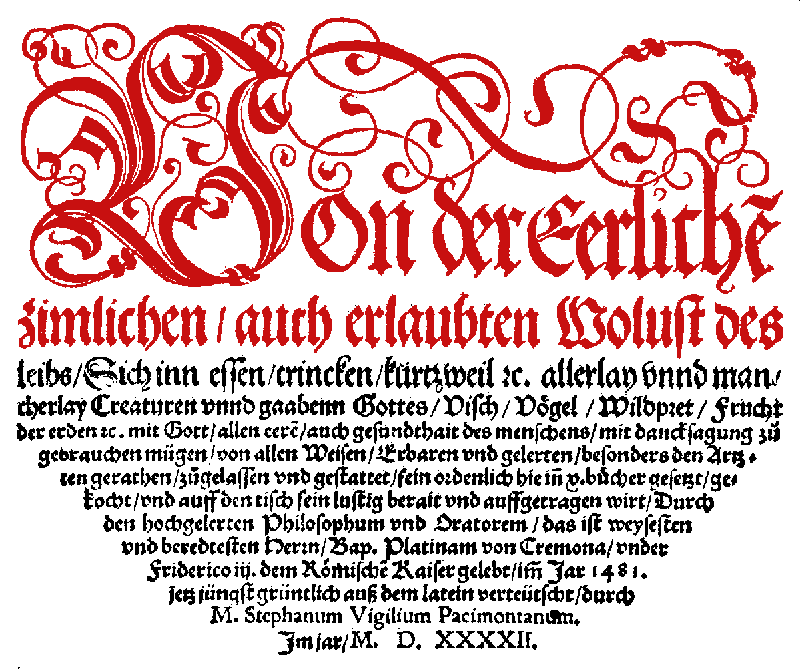 Von der Eerlichē
zimlichen / auch erlaubten Wolust des
leibs / Sich inn essen / trincken / kürtzweil ꝛc. allerlay vnnd man/
cherlay Creaturen vnnd gaabenn Gottes / Visch / Vögel / Wildpret / Frucht
der erden ꝛc. mit Gott / allen eerē / auch gesundthait des menschens / mit dancksagung zů
gebrauchen mügen / von allen Weisen / Erbaren vnd gelerten / besonders den Artz⸗
ten gerathen / zůgelassen vnd gestattet / fein ordenlich hie iñ x. bücher gesetzt / ge⸗
kocht / vnd auff den tisch fein lustig berait vnd auffgetragen wirt / Durch
den hochgelerten Philosophum vnd Oratorem / das ist weysesten
vnd beredtesten Herrn / Bap. Platinam von Cremona / vnder
Friderico iij. dem Römischē Kaiser gelebt / im̃ Jar 1481.
jetz jüngst gründtlich auß dem latein verteütscht / durch
M. Stephanum Vigilium Pacimontanum.
Im jar / M. D. XXXXII.